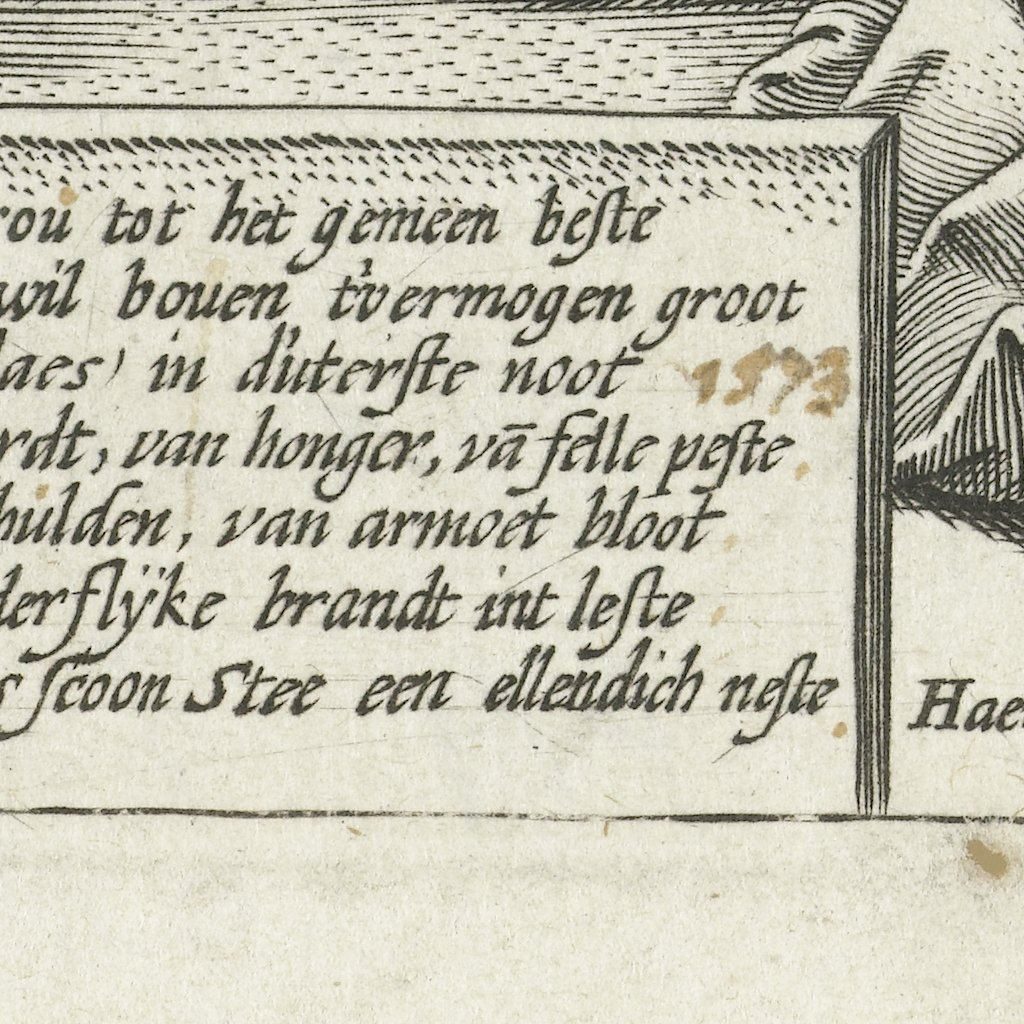 rou tot het gemeen beſte
wil bouen t'vermogen groot
laes) in d'uterſte noot 1573
rdt, van honger, vā felle peſte
hulden, van armoet bloot
derflÿke brandt int leſte
s ſcoon Stee een ellendich neſte
Hae